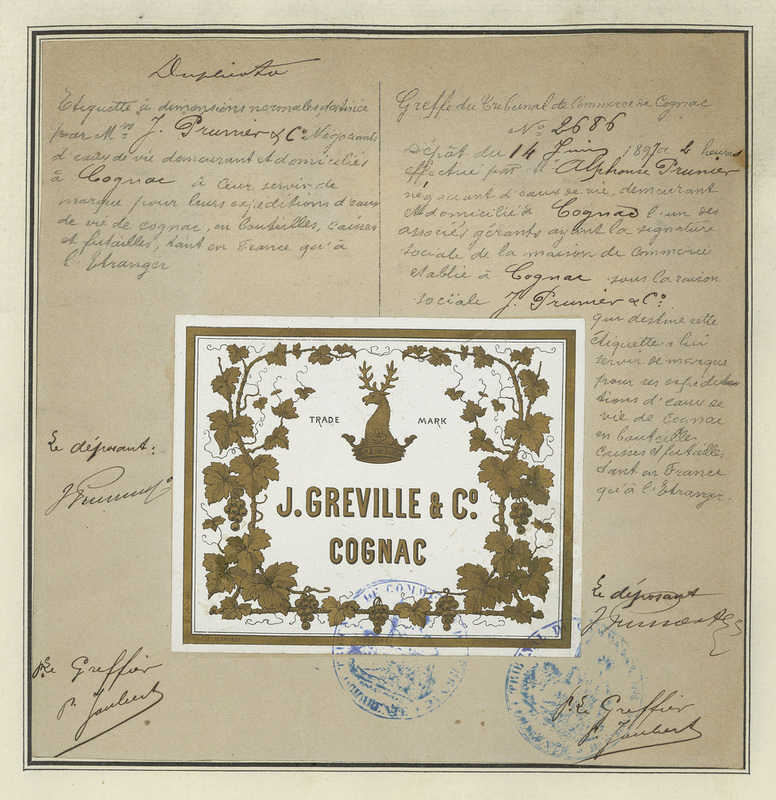 Duplicata
Etiquette à dimensions normales, destinée
par M.rs J. Prunier & C.o Négociants
d'eaux de vie demeurant et domiciliés
à Cognac à leur servir de
marque pour leurs expéditions d'eaux
de vie de cognac, en bouteilles, caisses
et futailles, tant en France qu'à
l'Etranger
Le déposant:
J. Prunier & Co
p. Le Greffier
P. Joubert
Greffe du Tribunal de Commerce de Cognac
N.o 2686
Dépôt du 14 Juin 1897 à 2 heures
effectué par M. Alphonse Prunier
négociant d'eaux de vie, demeurant
et domicilié à Cognac l'un des
associés gérants ayant la signature
sociale de la maison de commerce
établie à Cognac sous la raison
sociale J. Prunier & C.o
qui destine cette
étiquette à lui
servir de marque
pour ses expédi-
tions d'eaux de
vie de Cognac
en bouteilles,
caisses et futailles
tant en France
qu'à l'Etranger.
Le déposant
J. Prunier & Co
p. Le Greffier
P. Joubert
TRADE MARK
J. GREVILLE & C.o
COGNAC